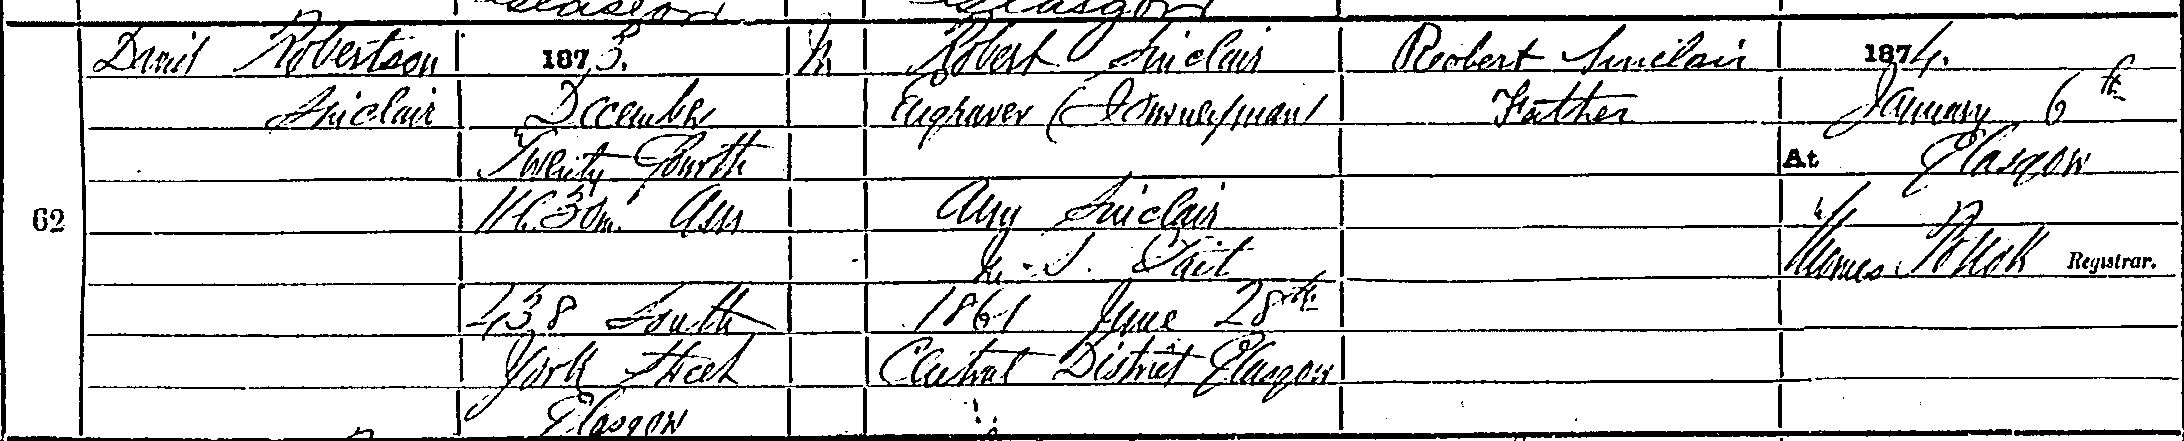 Glasgow Glasgow
62
David Robertson
Sinclair
1873.
December
Twenty Fourth
11h. 30m. AM
438 South
York Street
Glasgow
M.
Robert Sinclair
Engraver (Journeyman)
Amy Sinclair
M.S. Tait
1861 June 28th
Central District Glasgow
Robert Sinclair
Father
1874.
January 6th
At Glasgow
Registrar.